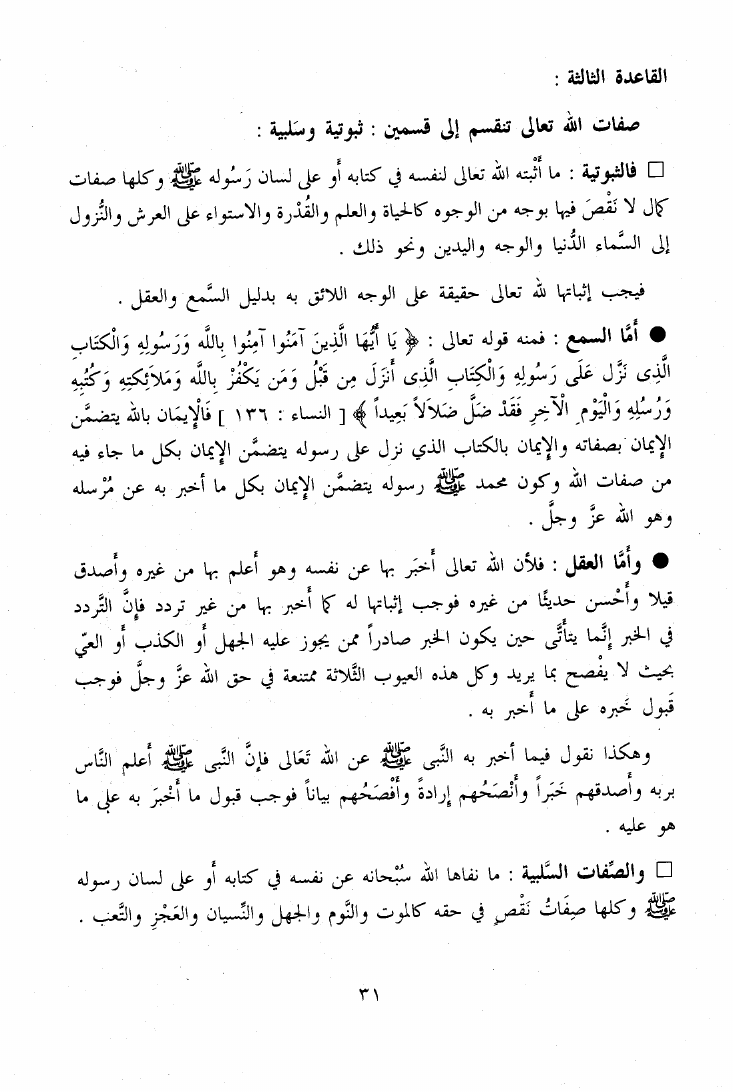 القاعدة الثالثة :
صفات الله تعالى تنقسم إلى قسمين : ثبوتية وسَلبية :
□ فالثبوتية : ما أثْبته الله تعالى لنفسه في كتابه أو على لسان رَسُوله ﷺ وكلها صفات
كمال لا نَقْصَ فيها بوجه من الوجوه كالحياة والعلم والقُدْرة والاستواء على العرش والنُّزول
إلى السَّماء الدُّنيا والوجه واليدين ونحو ذلك .
فيجب إثباتها لله تعالى حقيقة على الوجه اللائق به بدليل السَّمع والعقل .
● أمَّا السمع : فمنه قوله تعالى : ﴿ يَا أَيُّهَا الَّذِينَ آمَنُوا آمِنُوا بِاللَّه وَرَسُولِهِ وَالْكتَابِ
الَّذِى نَزَّل عَلَى رَسُولِهِ وَالْكِتَابِ الَّذِى أَنزَلَ مِن قَبْلُ وَمَن يَكْفُرْ بِاللَّه وَمَلاَئِكتِهِ وَكُتُبِهِ
وَرُسُلِهِ وَالْيَوْمِ الْآخِرِ فَقَدْ ضَلَّ ضَلاَلاً بَعِيداً ﴾ [ النساء : ١٣٦ ] فَالْإِيمَان بالله يتضمَّن
الإيمان بصفاته والإيمان بالكتاب الذي نزل على رسوله يتضمَّن الإيمان بكل ما جاء فيه
من صفات الله وكون محمد ﷺ رسوله يتضمَّن الإيمان بكل ما أخبر به عن مُرْسله
وهو الله عزَّ وجلَّ .
● وأمَّا العقل : فلأن الله تعالى أَخبَر بها عن نفسه وهو أعلم بها من غيره وأصدق
قيلا وأحْسن حديثًا من غيره فوجب إثباتها له كما أخبر بها من غير تردد فإنَّ التَّردد
في الخبر إنَّما يتأتَّى حين يكون الخبر صادراً ممن يجوز عليه الجهل أو الكذب أو العيّ
بحيث لا يفْصح بما يريد وكل هذه العيوب الثَّلاثة ممتنعة في حق الله عزَّ وجلَّ فوجب
قَبول خَبره على ما أخبر به .
وهكذا نقول فيما أخبر به النَّبى ﷺ عن الله تَعَالى فإنَّ النَّبى ﷺ أعلم النَّاس
بربه وأصدقهم خَبَراً وأنْصَحُهم إرادةً وأفْصَحُهم بياناً فوجب قبول ما أَخْبرَ به على ما
هو عليه .
□ والصِّفات السَّلبية : ما نفاها الله سُبْحانه عن نفسه في كتابه أو على لسان رسوله
ﷺ وكلها صِفَاتُ نَقْصٍ في حقه كالموت والنَّوم والجهل والنِّسيان والعَجْزِ والتَّعب .
٣١